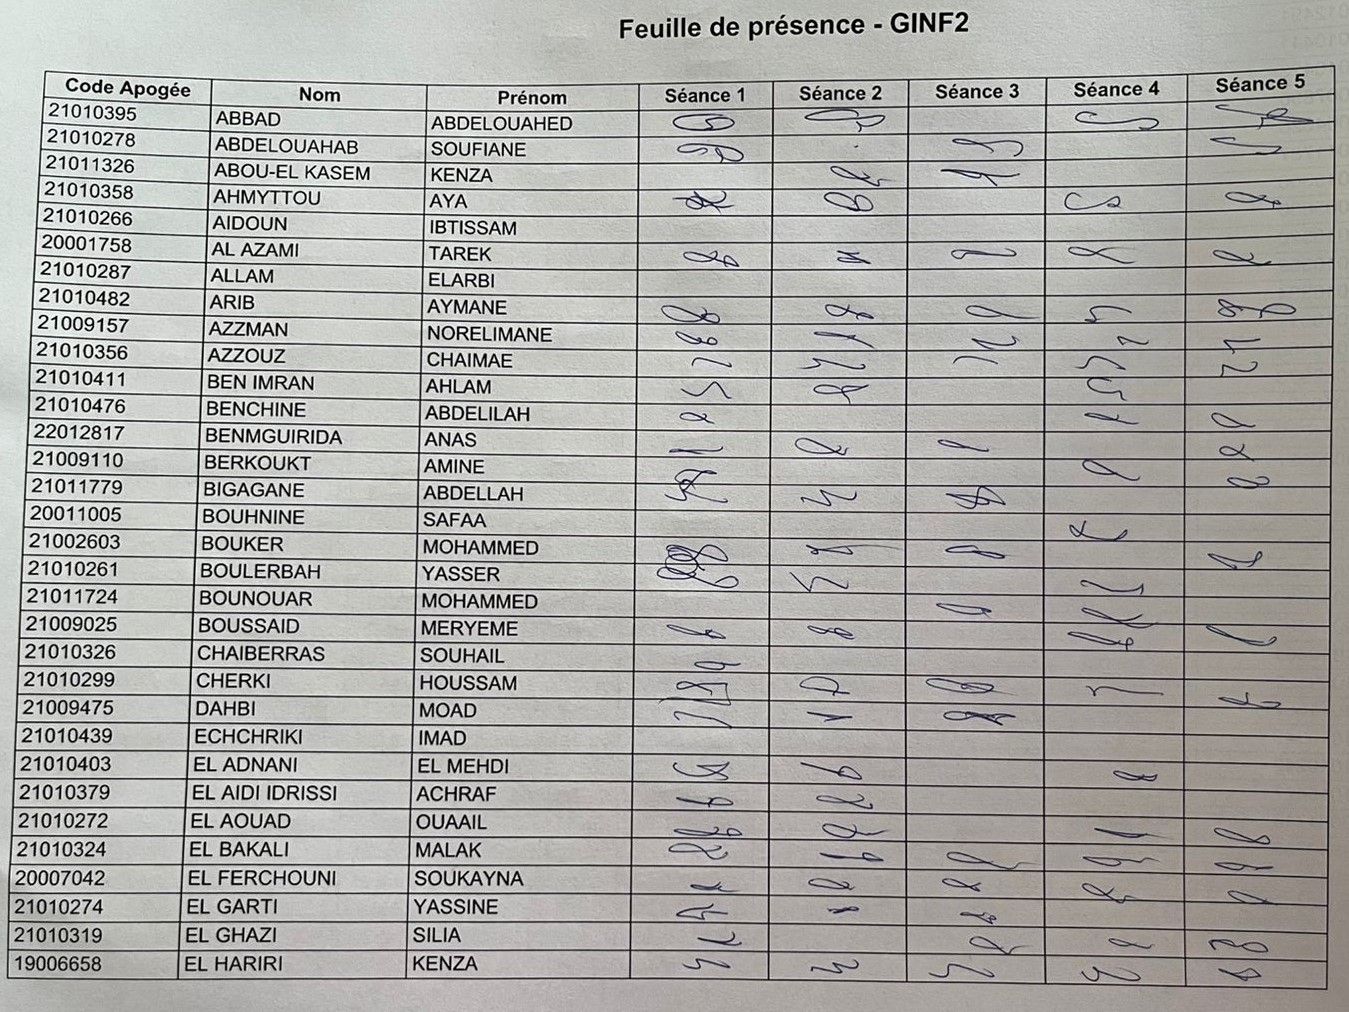 Feuille de présence - GINF2
Code Apogée Nom Prénom Séance 1 Séance 2 Séance 3 Séance 4 Séance 5
21010395 ABBAD ABDELOUAHED
21010278 ABDELOUAHAB SOUFIANE
21011326 ABOU-EL KASEM KENZA
21010358 AHMYTTOU AYA
21010266 AIDOUN IBTISSAM
20001758 AL AZAMI TAREK
21010287 ALLAM ELARBI
21010482 ARIB AYMANE
21009157 AZZMAN NORELIMANE
21010356 AZZOUZ CHAIMAE
21010411 BEN IMRAN AHLAM
21010476 BENCHINE ABDELILAH
22012817 BENMGUIRIDA ANAS
21009110 BERKOUKT AMINE
21011779 BIGAGANE ABDELLAH
20011005 BOUHNINE SAFAA
21002603 BOUKER MOHAMMED
21010261 BOULERBAH YASSER
21011724 BOUNOUAR MOHAMMED
21009025 BOUSSAID MERYEME
21010326 CHAIBERRAS SOUHAIL
21010299 CHERKI HOUSSAM
21009475 DAHBI MOAD
21010439 ECHCHRIKI IMAD
21010403 EL ADNANI EL MEHDI
21010379 EL AIDI IDRISSI ACHRAF
21010272 EL AOUAD OUAAIL
21010324 EL BAKALI MALAK
20007042 EL FERCHOUNI SOUKAYNA
21010274 EL GARTI YASSINE
21010319 EL GHAZI SILIA
19006658 EL HARIRI KENZA